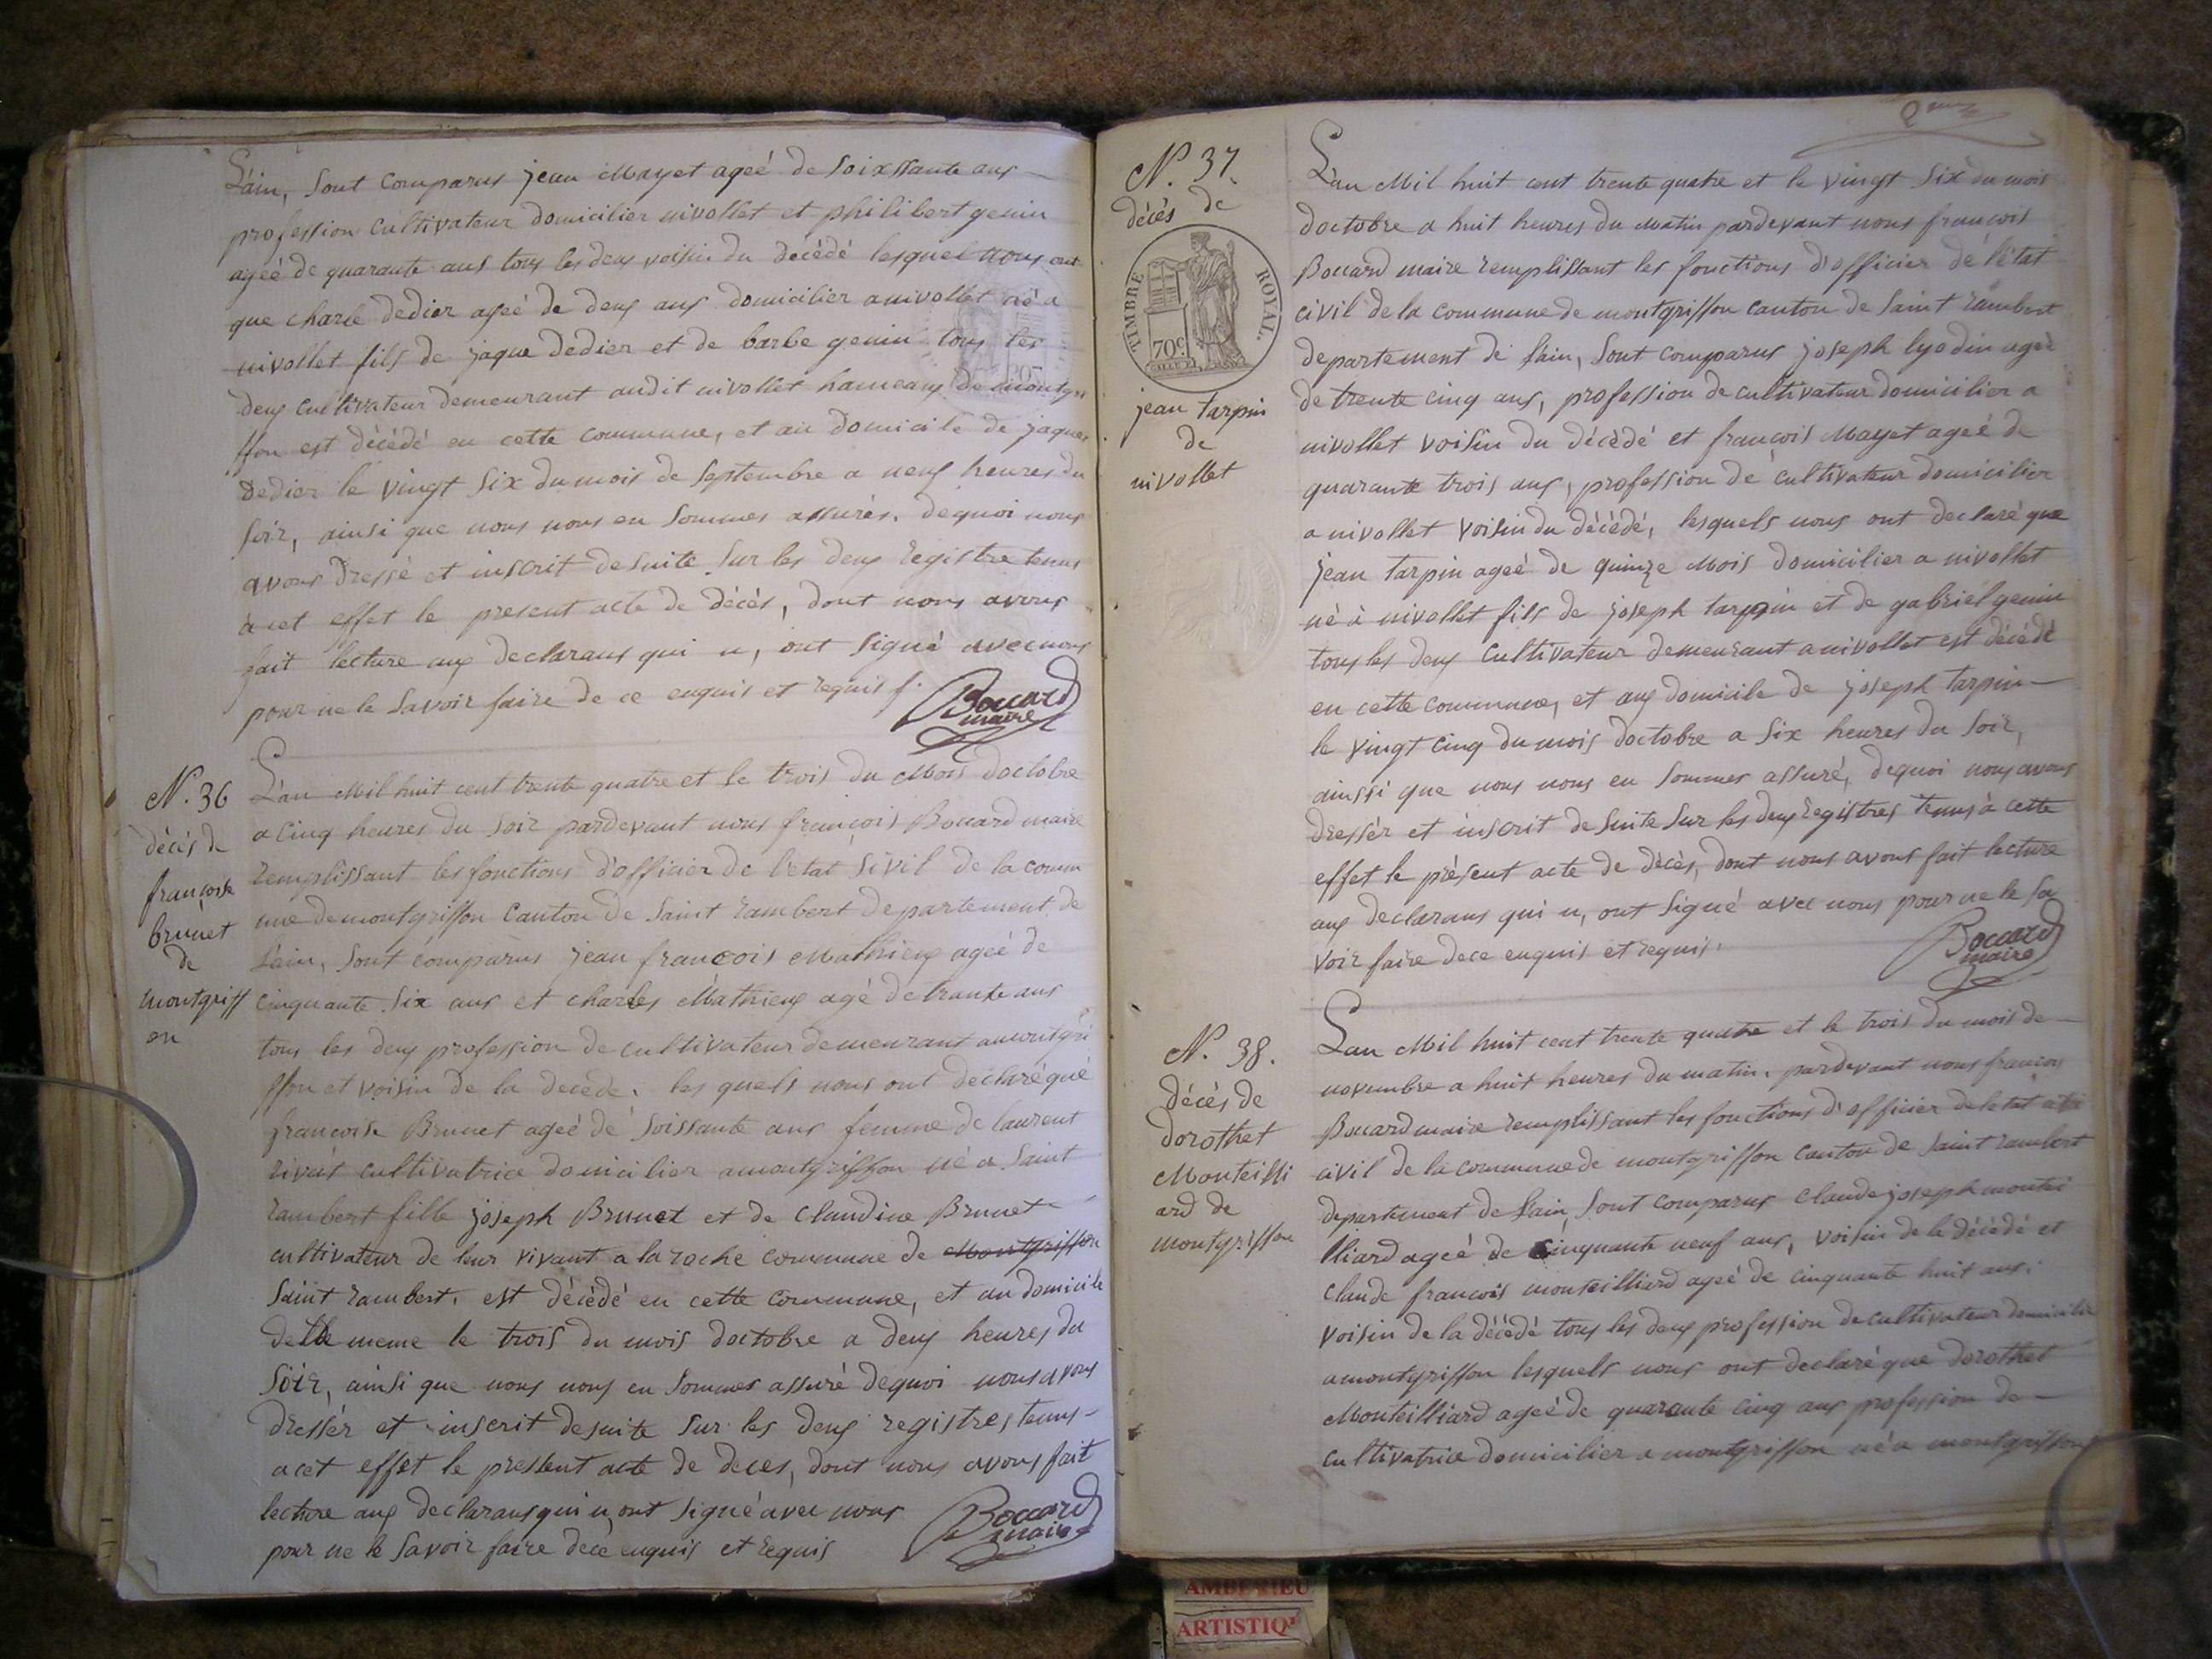 L'ain, sont comparus jean Mayet ageé de soixssante ans
profession cultivateur domicilier nivollet et philibert genin
ageé de quarante ans tous les deux voisin du décédé lesquel nous ont
que charle dedier ageé de deux ans domicilier a nivollet né a
nivollet fils de jaque dedier et de barbe genin tous les
deux cultivateur demeurant audit nivollet hameaux de montgri
ffon est décédé en cette commune, et au domicile de jaques
dedier le vingt six du mois de septembre a neuf heures du
soir, ainsi que nous nous en sommes assurés. dequoi nous
avons dressé et inscrit desuite sur les deux registre tenus
à cet effet le present acte de décès, dont nous avons
fait lecture aux declarans qui n, ont signé avec nous
pour ne le savoir faire de ce enquis et requis f.
Bouard
maire
N. 36
décés de
francoise
brunet
de
montgriff
on
L'an Mil huit cent trente quatre et le trois du Mois doctobre
a cinq heures du soir pardevant nous françois Bouard maire
remplissant les fonctions d'officier de l'état sivil de la comm
une de montgriffon canton de saint rambert departement de
l'ain, sont comparus jean francois Mathieux ageé de
cinquante six ans et charles Mathieux agé de trante ans
tous les deux profession de cultivateur demeurant amontgri
ffon et voisin de la decede. les quels nous ont déclaré que
francoise Brunet ageé de soissante ans femme de laurent
rivat cultivatrice domicilier amontgriffon né a saint
rambert fille joseph Brunet et de claudine Brunet
cultivateur de leur vivant a la roche commune de Montgriffon
saint rambert. est décédé en cette commune, et au domicile
delle meme le trois du mois doctobre a deux heures du
soir, ainsi que nous nous en sommes assuré dequoi nous avons
dressér et inscrit desuite sur les deux registres tenus
acet effet le pressent acte de deces, dont nous avons fait
lecture aux declarans qui n, ont signé avec nous
pour ne le savoir faire dece enquis et requis
Bouard
maire
N. 37
décès de
TIMBRE ROYAL.
70c.
jean tarpin
de
nivollet
L'an Mil huit cent trente quatre et le vingt six du mois
doctobre a huit heures du matin pardevant nous francois
Bouard maire remplissant les fonctions d'officier de l'état
civil de la commune de montgriffon canton de saint rambert
departement de l'ain, sont comparus joseph lyodin ageé
de trente cinq ans, profession de cultivateur domicilier a
nivollet voisin du décédé et françois Mayet ageé de
quarante trois ans, profession de cultivateur domicilier
a nivollet voisin du décédé, lesquels nous ont declaré que
jean tarpin ageé de quinze Mois domicilier a nivollet
né à nivollet fils de joseph tarpin et de gabriel genin
tous les deux cultivateur demeurant a nivollet est décédé
en cette commune, et aux domicile de joseph tarpin
le vingt cinq du mois doctobre a six heures du soir,
ainssi que nous nous en sommes assuré, dequoi nous avons
dressér et inscrit desuite sur les deux registres tenus à cette
effet le présent acte de décès, dont nous avons fait lecture
aux declarans qui n, ont signé avec nous pour ne le sa
voir faire dece enquis et requis.
Bouard
maire
N. 38.
décès de
dorothet
Monteilli
ard de
montgriffon
L'an Mil huit cent trente quatre et le trois du mois de
novembre a huit heures du matin. pardevant nous francois
Bouard maire remplissant les fonctions d'officier de letat
civil de la commune de montgriffon canton de saint rambert
departement de l'ain, sont comparus claude joseph montei
lliard ageé de cinquante neuf ans, voisin de la décédé et
claude francois monteilliard ageé de cinquante huit ans.
voisin de la décédé tous les deux profession de cultivateur domicilie
amontgriffon lesquels nous ont declaré que dorothet
Monteilliard ageé de quarante cinq ans profession de
cultivatrice domicilier a montgriffon né a montgriffon
AMBERIEU
ARTISTIQ